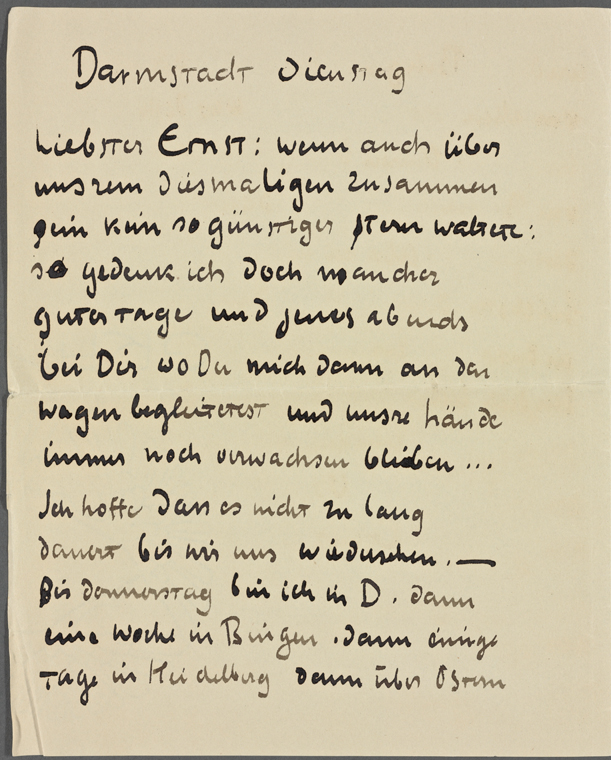 Darmstadt dienstag
Liebster Ernst: wenn auch über
unsrem diesmaligen zusammen
sein kein so günstiger stern waltete:
so gedenk ich doch mancher
guter tage und jenes abends
bei Dir wo Du mich dann an den
wagen begleitetest und unsre hände
immer noch verwachsen blieben ...
Ich hoffe dass es nicht zu lang
dauert bis wir uns wiedersehen. —
Bis donnerstag bin ich in D. dann
eine woche in Bingen . dann einige
tage in Heidelberg dann über Ostern